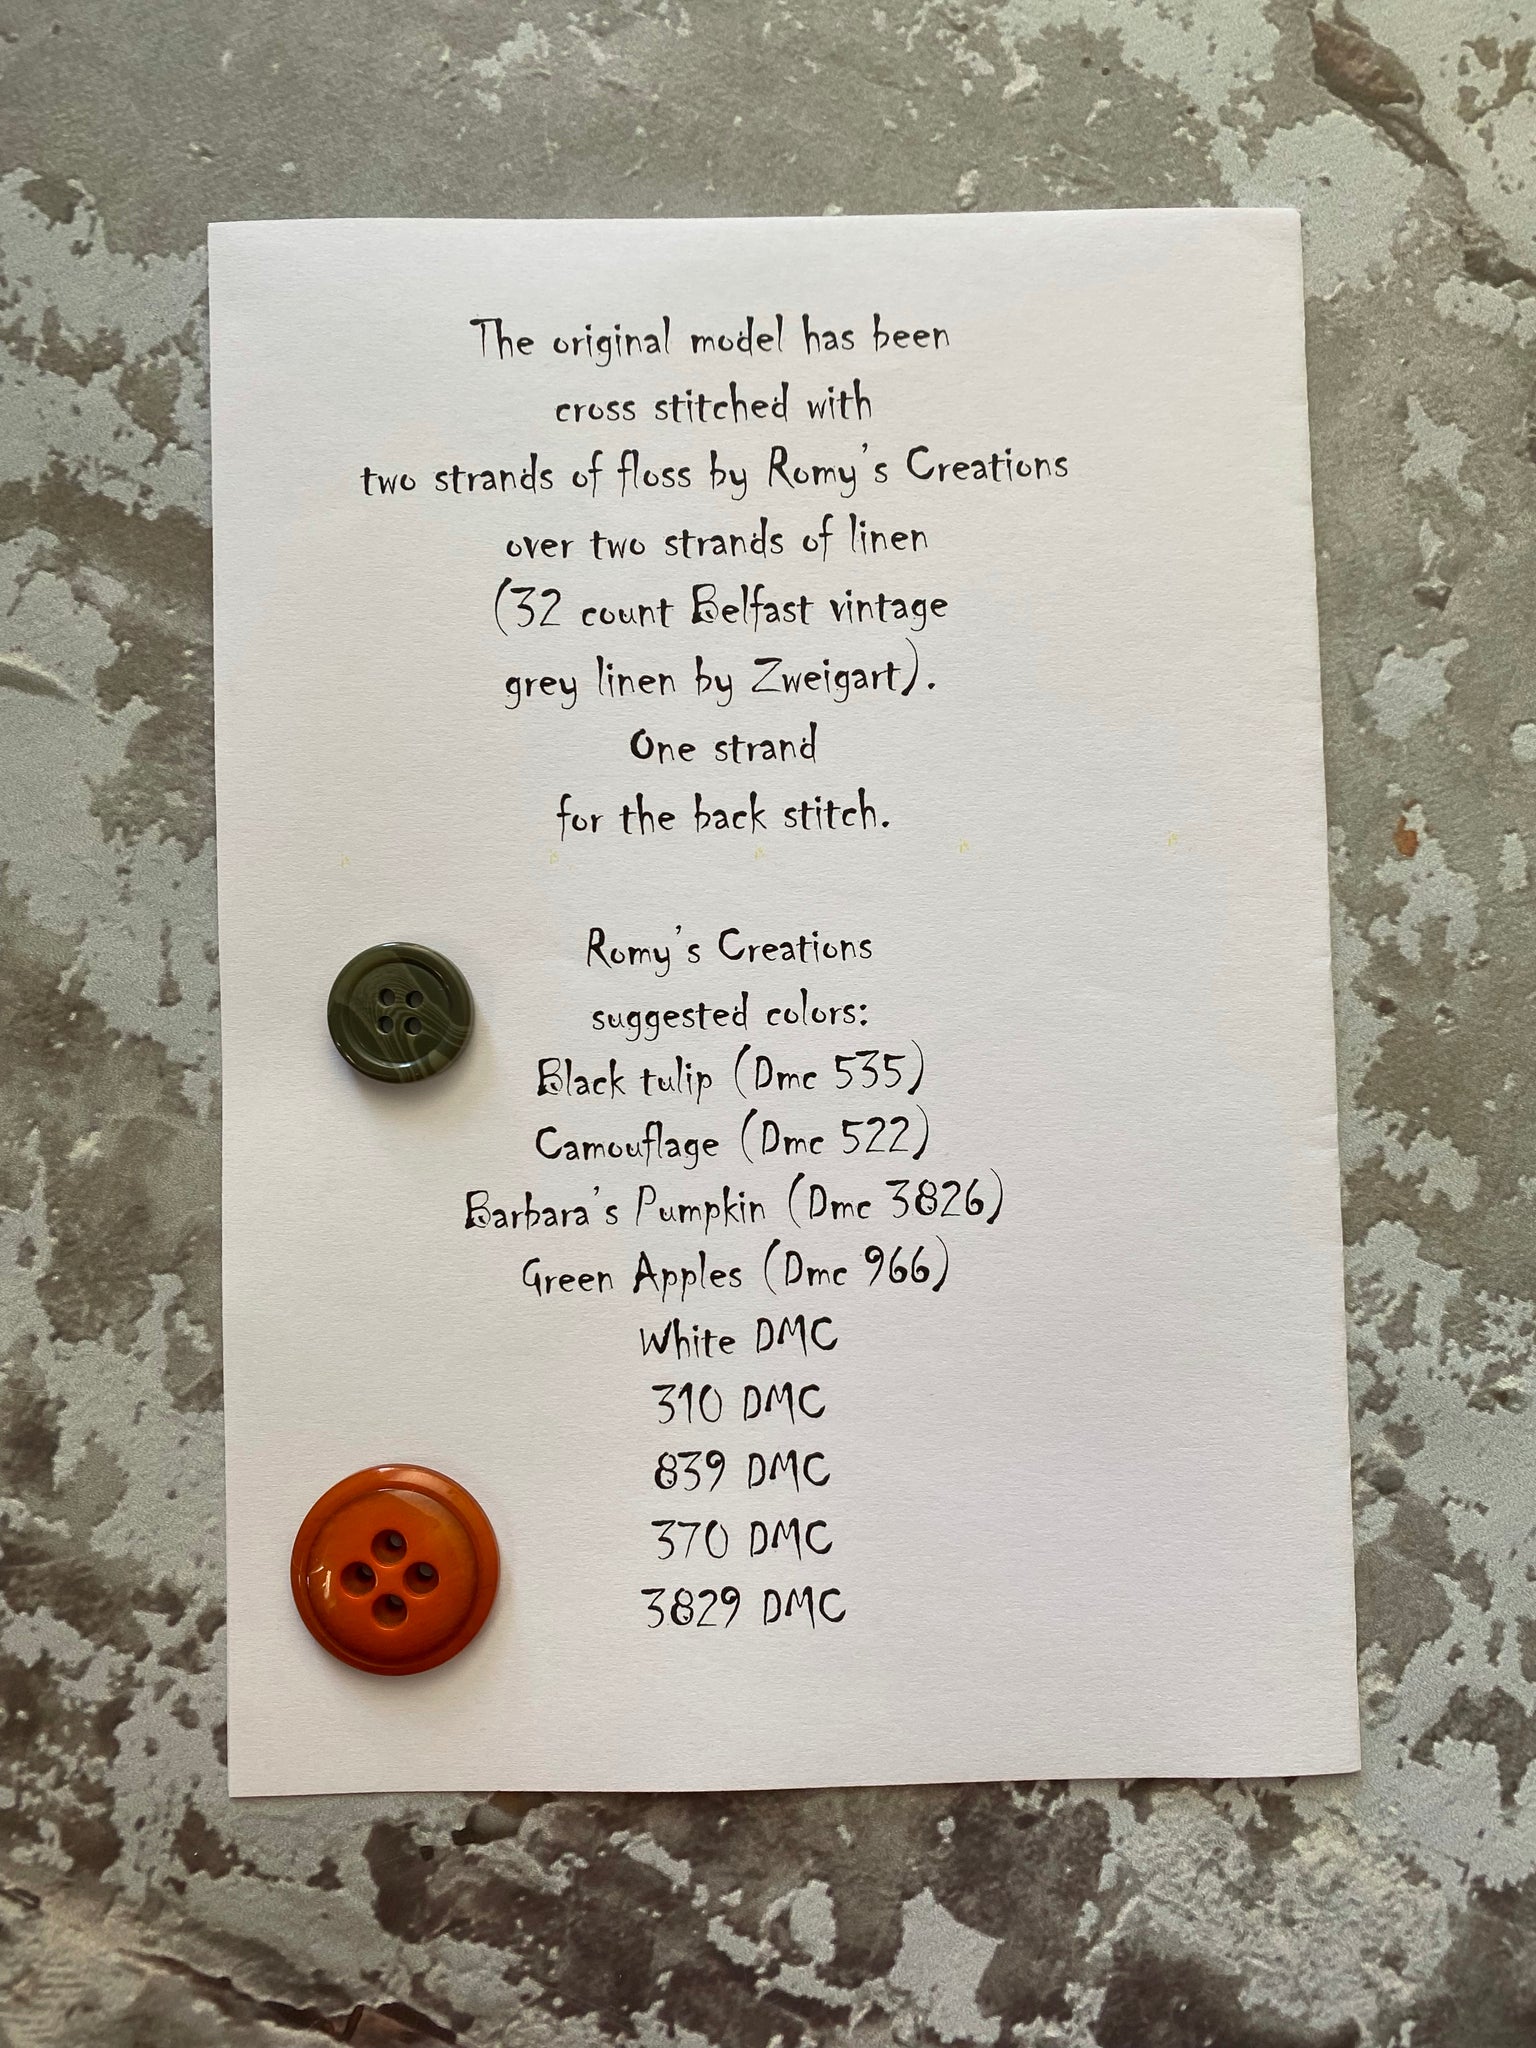 The original model has been
cross stitched with
two strands of floss by Romy's Creations
over two strands of linen
(32 count Belfast vintage
grey linen by Zweigart).
One strand
for the back stitch.
Romy's Creations
suggested colors:
Black tulip (Dmc 535)
Camouflage (Dmc 522)
Barbara's Pumpkin (Dmc 3826)
Green Apples (Dmc 966)
White DMC
310 DMC
839 DMC
370 DMC
3829 DMC